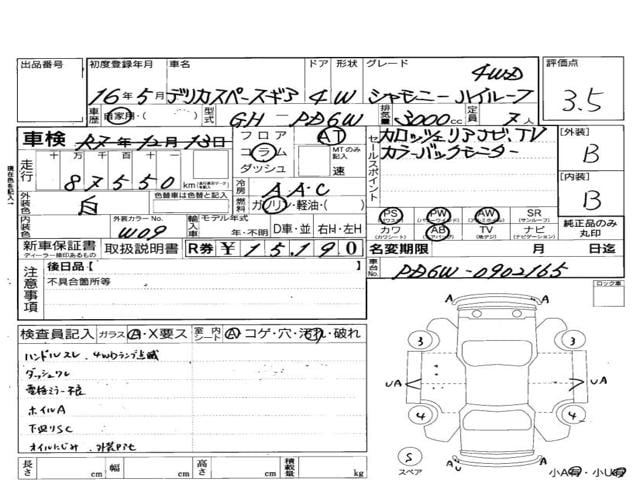 出品番号
初度登録年月 車名 ドア 形状 グレード 評価点
16年5月 デリカスペースギア 4 W シャモニーハイルーフ 4WD 3.5
車歴 自家用・( ) 型式 GH-PD6W 排気量 3000cc 定員 7人
車検 R7年12月13日 フロア コラム ダッシュ AT MTのみ記入 速
セールスポイント カロッツェリアナビ、TV
カラーバックモニター
【外装】 B
【内装】 B
走行 十万千百十 87550 km
冷房 AAC
燃料 ガソリン・軽油・( )
外装色 白 色替車は色替と記入
内装色 外装カラーNo. W09
輸入車 モデル年式 年・不明 D車・並 右H・左H
PS PW AW SR (サンルーフ)
カワ (カワシート) AB (エアバッグ) TV (地デジ) ナビ (ナビゲーション)
純正品のみ丸印
新車保証書 ディーラー捺印あるもの 取扱説明書 R券 ¥15,190
名変期限 月 日迄
車台No. PD6W-0902165
注意事項 後日品【
不具合箇所等
ロック車
検査員記入 ガラス A・X要ス 室内シート A コゲ・穴・汚れ・破れ
ハンドルスレ、4WDランプ点滅
ダッシュワレ
電格ミラー不良
ホイルA
下回りSC
オイルにじみ
長さ cm 幅 cm 高さ cm 積載量 kg
A A
3 3
UA UA
4 4
S スペア
A A
小A有・小U有